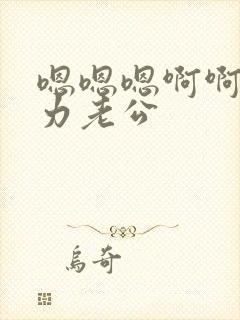 嗯嗯嗯啊啊
力老公
乌奇